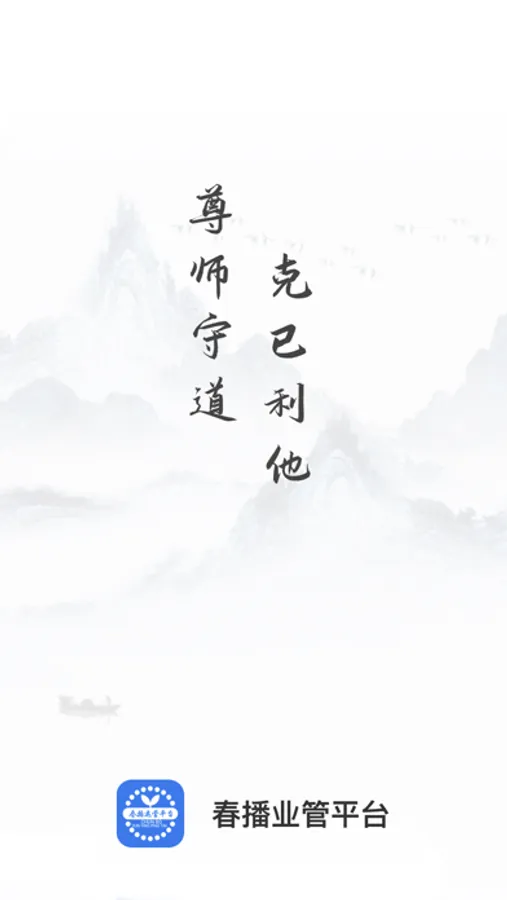 尊师守道
克己利他
春播业管平台
春播业管平台